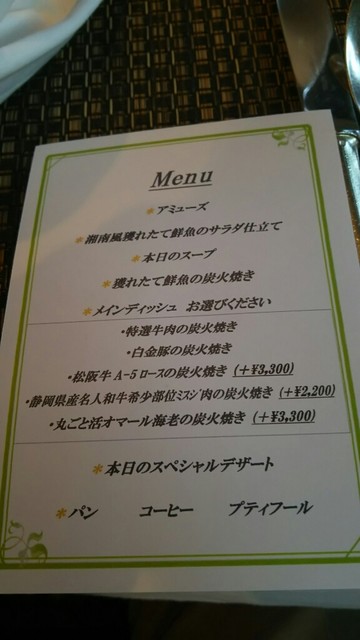 Menu
*アミューズ
*湘南風獲れたて鮮魚のサラダ仕立て
*本日のスープ
*獲れたて鮮魚の炭火焼き
*メインディッシュ お選びください
・特選牛肉の炭火焼き
・白金豚の炭火焼き
・松阪牛 A-5 ロースの炭火焼き (+¥3,300)
・静岡県産名人和牛希少部位ミスジ肉の炭火焼き (+¥2,200)
・丸ごと活オマール海老の炭火焼き (+¥3,300)
*本日のスペシャルデザート
*パン コーヒー プティフール